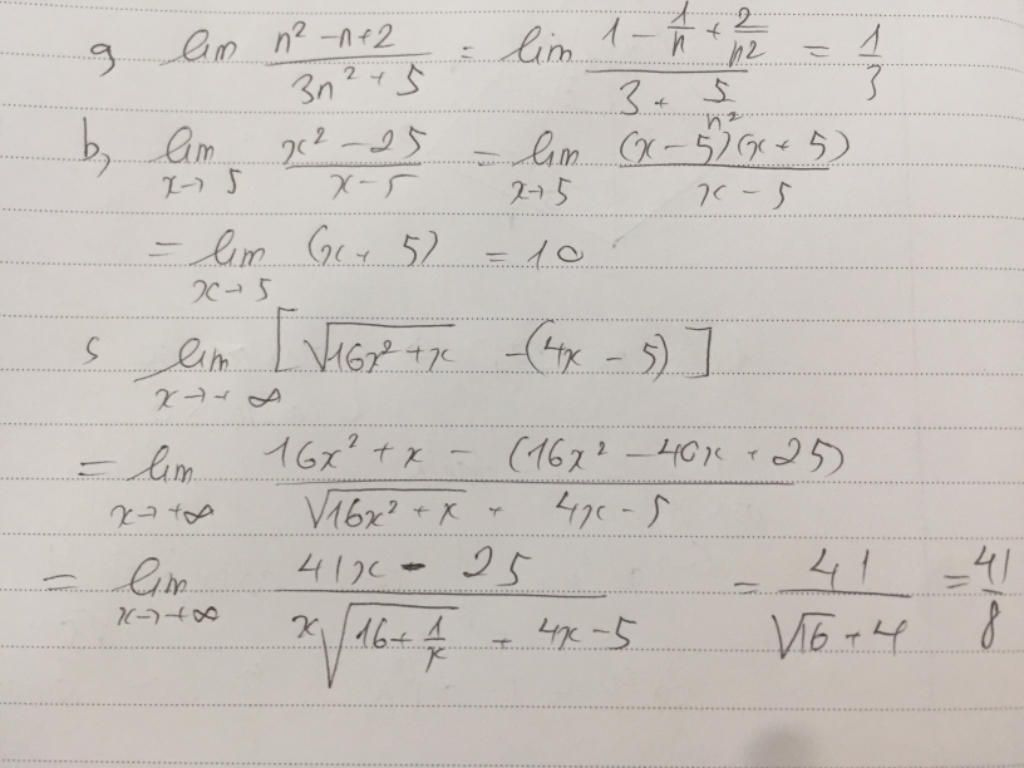 a, lim (n² - n + 2)/(3n² + 5) = lim (1 - 1/n + 2/n²)/(3 + 5/n²) = 1/3
b, lim x→5 (x² - 25)/(x - 5) = lim x→5 (x - 5)(x + 5)/(x - 5)
= lim x→5 (x + 5) = 10
c lim x→+∞ [√(16x² + x) - (4x - 5)]
= lim x→+∞ (16x² + x - (16x² - 40x + 25))/(√(16x² + x) + 4x - 5)
= lim x→+∞ (41x - 25)/(x√(16 + 1/x) + 4x - 5) = 41/(√16 + 4) = 41/8